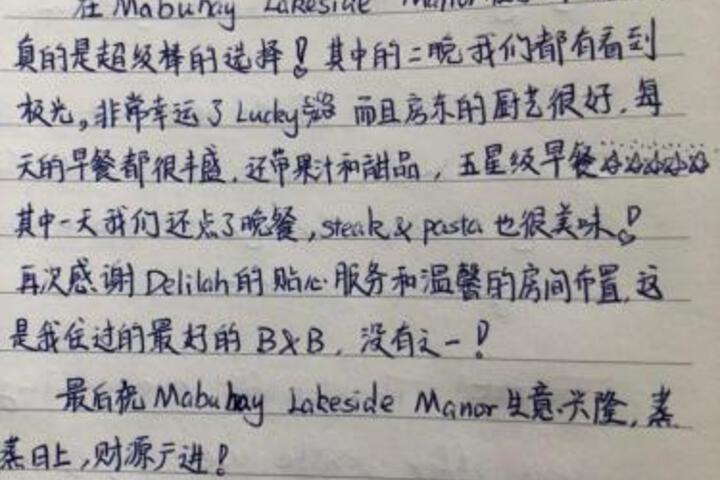 在 Mabuhay Lakeside Manor
真的是超级棒的选择！其中的二晚我们都有看到
极光。非常幸运了 Lucky 而且房东的厨艺很好，每
天的早餐都很丰盛，还带果汁和甜品，五星级早餐☆☆☆☆☆
其中一天我们还点了晚餐，steak & pasta 也很美味！
再次感谢 Delilah 的贴心服务和温馨的房间布置，这
是我住过的最好的 B&B，没有之一！
最后祝 Mabuhay Lakeside Manor 生意兴隆，蒸
蒸日上，财源广进！